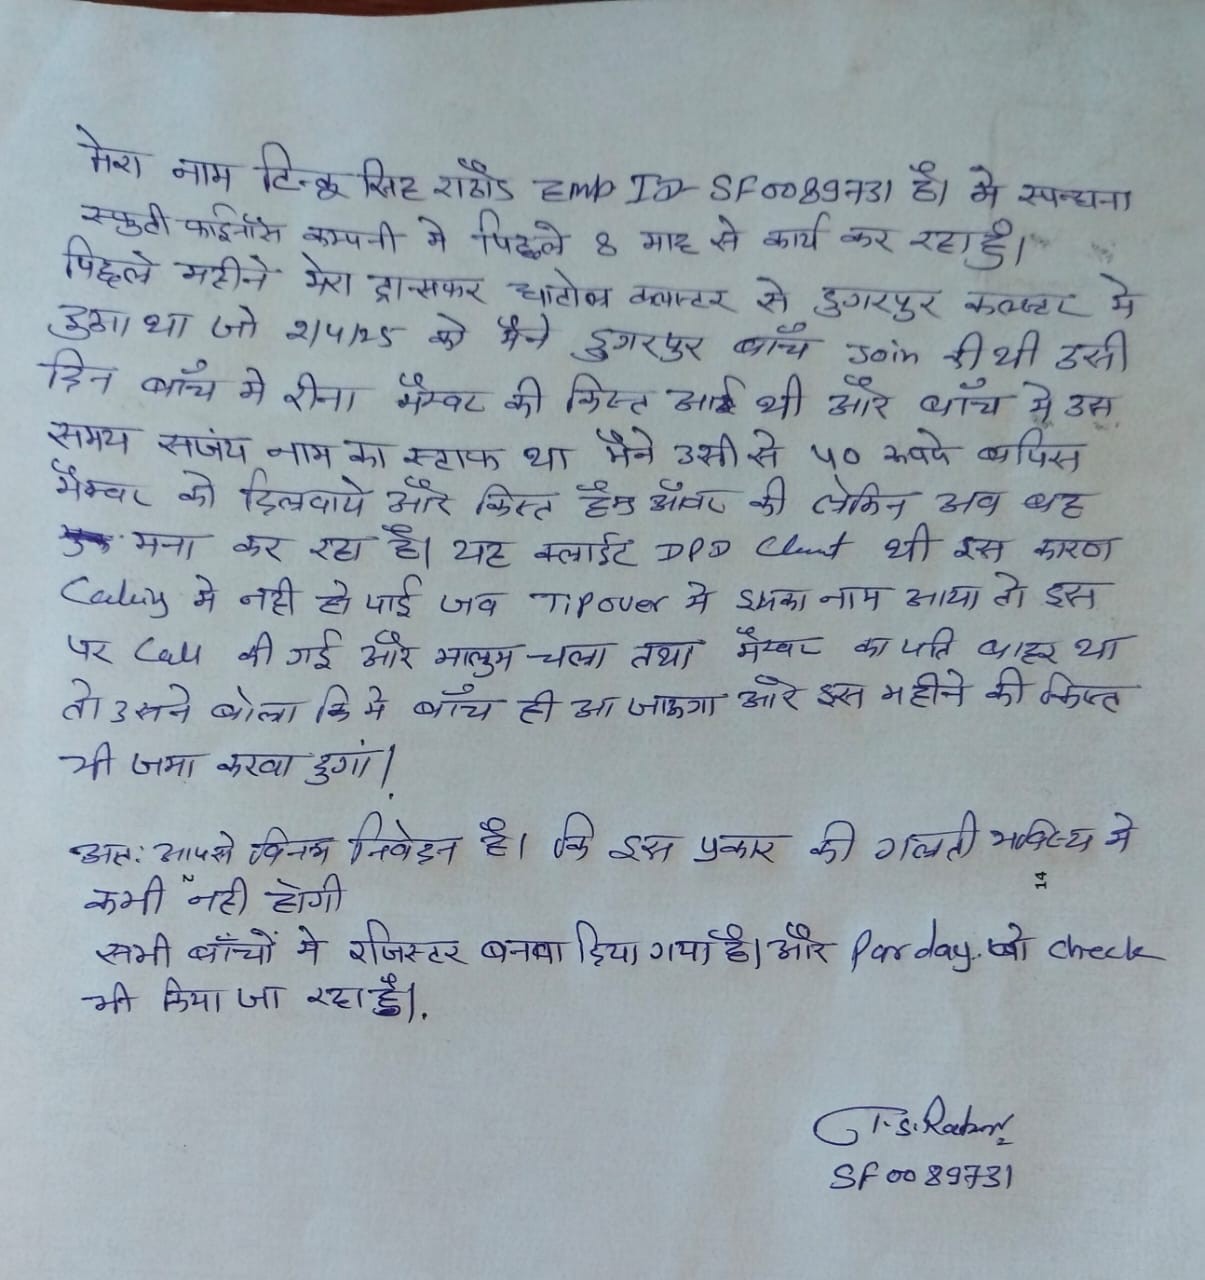 मेरा नाम टिन्कू सिह राठौड Emp ID SF0089731 है। मे स्पन्धना
स्फुर्ती फाईनॉस कम्पनी मे पिछले 8 माह से कार्य कर रहा हुँ।
पिछले महीने मेरा ट्रान्सफर घाटोल क्लस्टर से डुगरपुर कलस्टर मे
हुआ था जो 2/4/25 को मैने डुगरपुर बाँच Join की थी उसी
दिन बाँच मे रीना मैम्बर की किस्त आई थी और बाँच मे उस
समय सजंय नाम का स्टाफ था मैने उसी से 50 रूपये वापिस
मैम्बर को दिलवाये और किस्त हैण्ड ऑवर की लेकिन अब वह
मना कर रहा है। यह क्लाईट DPD Client थी इस कारण
Calling मे नही हो पाई जब Tipover मे इसका नाम आया तो इस
पर Call की गई और मालुम चला तथा मैम्बर का पति बाहर था
तो उसने बोला कि मे बाँच ही आ जाऊगा और इस महीने की किस्त
भी जमा करवा दुगां।
अतः आपसे विनम्र निवेदन है। कि इस प्रकार की गलती भविष्य मे
14
कभी नही होगी
सभी बाँचों मे रजिस्टर बनवा दिया गया है। और Par day को check
भी किया जा रहा है।.
T.S. Rathor
SF0089731